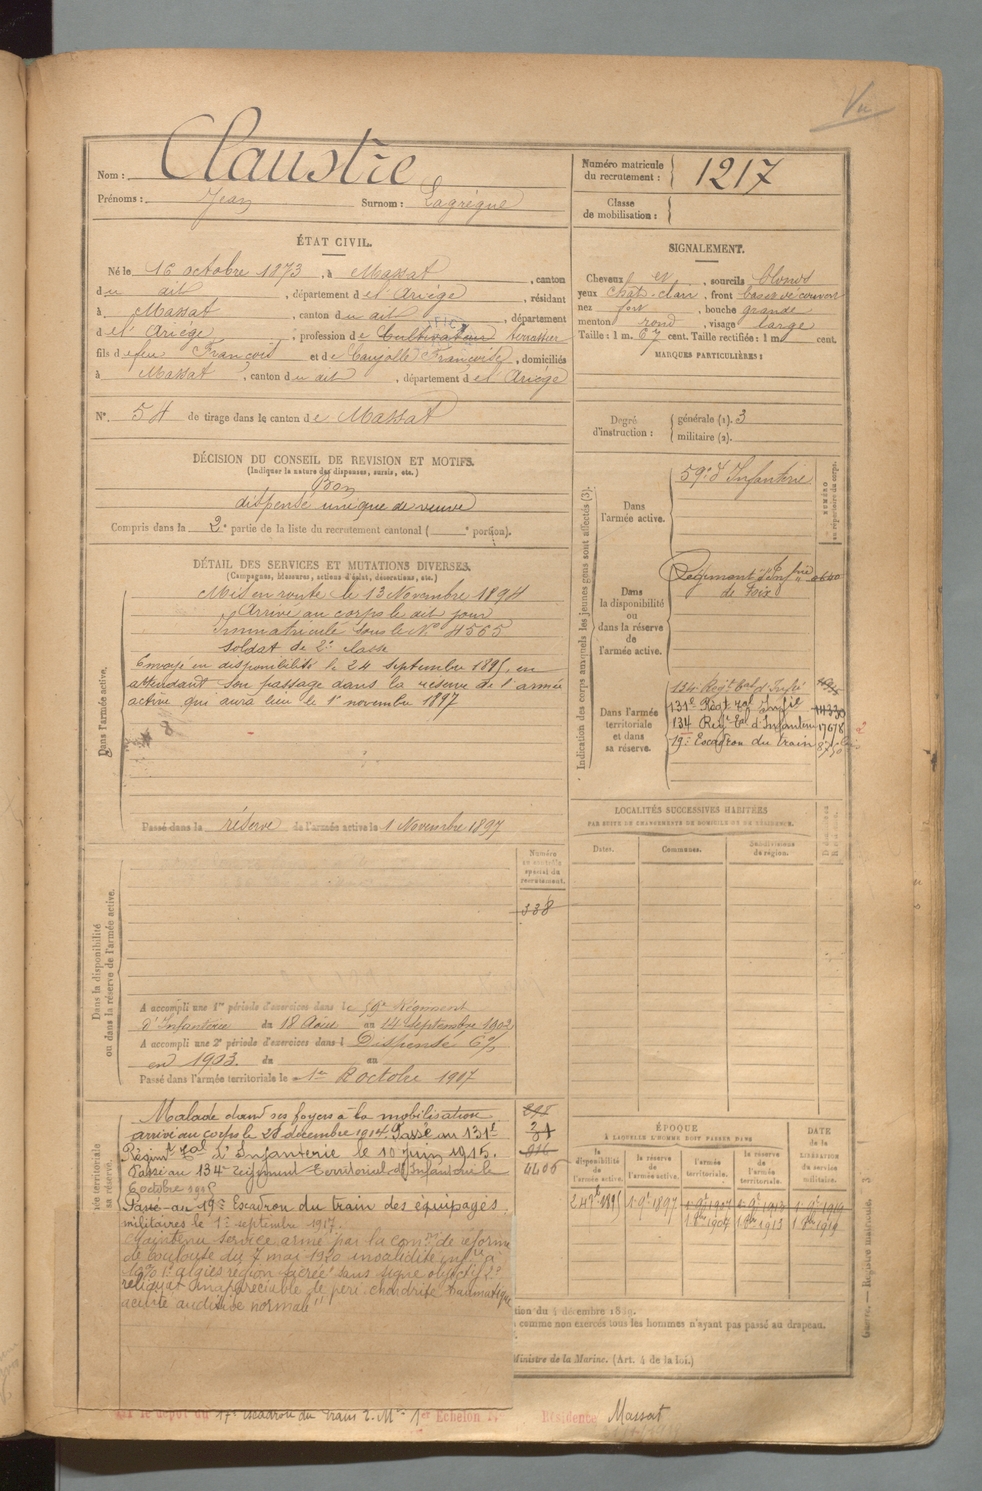 Vu
Nom : Claustre
Prénoms : Jean Surnom : Lagrègue
Numéro matricule du recrutement : 1217
Classe de mobilisation :
ÉTAT CIVIL.
Né le 16 octobre 1873, à Massat, canton
du dit, département de l'Ariége, résidant
à Massat, canton du dit, département
de l'Ariége, profession de Cultivateur terrassier
fils de feu François et de Caujolle Françoise, domiciliés
à Massat, canton du dit, département de l'Ariége
N°. 54 de tirage dans le canton de Massat
SIGNALEMENT.
Cheveux et, sourcils blonds
yeux chat. clair, front bas et découvert
nez fort, bouche grande
menton rond, visage large
Taille : 1 m. 67 cent. Taille rectifiée : 1 m. cent.
MARQUES PARTICULIÈRES :
Degré d'instruction :
générale (1). 3
militaire (2).
DÉCISION DU CONSEIL DE REVISION ET MOTIFS.
(Indiquer la nature des dispenses, sursis, etc.)
Bon
dispensé unique de veuve
Compris dans la 2e partie de la liste du recrutement cantonal ( e portion).
DÉTAIL DES SERVICES ET MUTATIONS DIVERSES.
(Campagnes, blessures, actions d'éclat, décorations, etc.)
Dans l'armée active.
Mis en route le 13 Novembre 1894
Arrivé au corps le dit jour
Immatriculé sous le No 4565
soldat de 2e classe
Envoyé en disponibilité le 24 septembre 1895, en
attendant son passage dans la réserve de l'armée
active qui aura lieu le 1er novembre 1897
Passé dans la réserve de l'armée active le 1 Novembre 1897
Indication des corps auxquels les jeunes gens sont affectés (3).
NUMÉRO au répertoire du corps.
Dans l'armée active.
59e d'Infanterie
Dans la disponibilité ou dans la réserve de l'armée active.
Régiment d'Infrie
de Foix
Dans l'armée territoriale et dans sa réserve.
134 Régt Eal d'Infie
131e Régt Eal Infie 14330
134 Regt Eal d'Infanterie 17678
19e Escadron du train
LOCALITÉS SUCCESSIVES HABITÉES
PAR SUITE DE CHANGEMENTS DE DOMICILE OU DE RÉSIDENCE.
Dates. Communes. Subdivisions de région.
Dans la disponibilité ou dans la réserve de l'armée active.
Numéro au contrôle spécial du recrutement.
338
A accompli une 1re période d'exercices dans le 59e Régiment
d'Infanterie du 18 Août au 14 Septembre 1902
A accompli une 2e période d'exercices dans l Dispensé 6%
en 1903. du au
Passé dans l'armée territoriale le 1er Octobre 1907
Malade dans ses foyers à la mobilisation
arrivé au corps le 28 décembre 1914. Passé au 131e
Régimt Eal d'Infanterie le 10 Juin 1915.
Passé au 134e Régiment Territorial d'Infanterie le
6 octobre 1915
Passé au 19e Escadron du train des équipages
militaires le 1er septembre 1917.
Maintenu service armé par la comon de réforme
de Toulouse du 7 mai 1920 invalidité infre à
10% 1° algies région sacrée sans signe objectif 2°
reliquat inappréciable de péri chondrite traumatique
acuité auditive normale"
4406
ÉPOQUE
À LAQUELLE L'HOMME DOIT PASSER DANS
la disponibilité de l'armée active.
la réserve de l'armée active.
l'armée territoriale.
la réserve de l'armée territoriale.
DATE de la LIBÉRATION du service militaire.
24 7bre 1895 1 9bre 1897 1 9bre 1907 1 9bre 1913 1 9bre 1919
1 8bre 1907 1 8bre 1913 1 8bre 1919
comme non exercés tous les hommes n'ayant pas passé au drapeau.
Ministre de la Marine. (Art. 4 de la loi.)
Guerre. — Registre matricule. 3
le dépôt du 17e escadron du Train 1er Echelon Résidence Massat